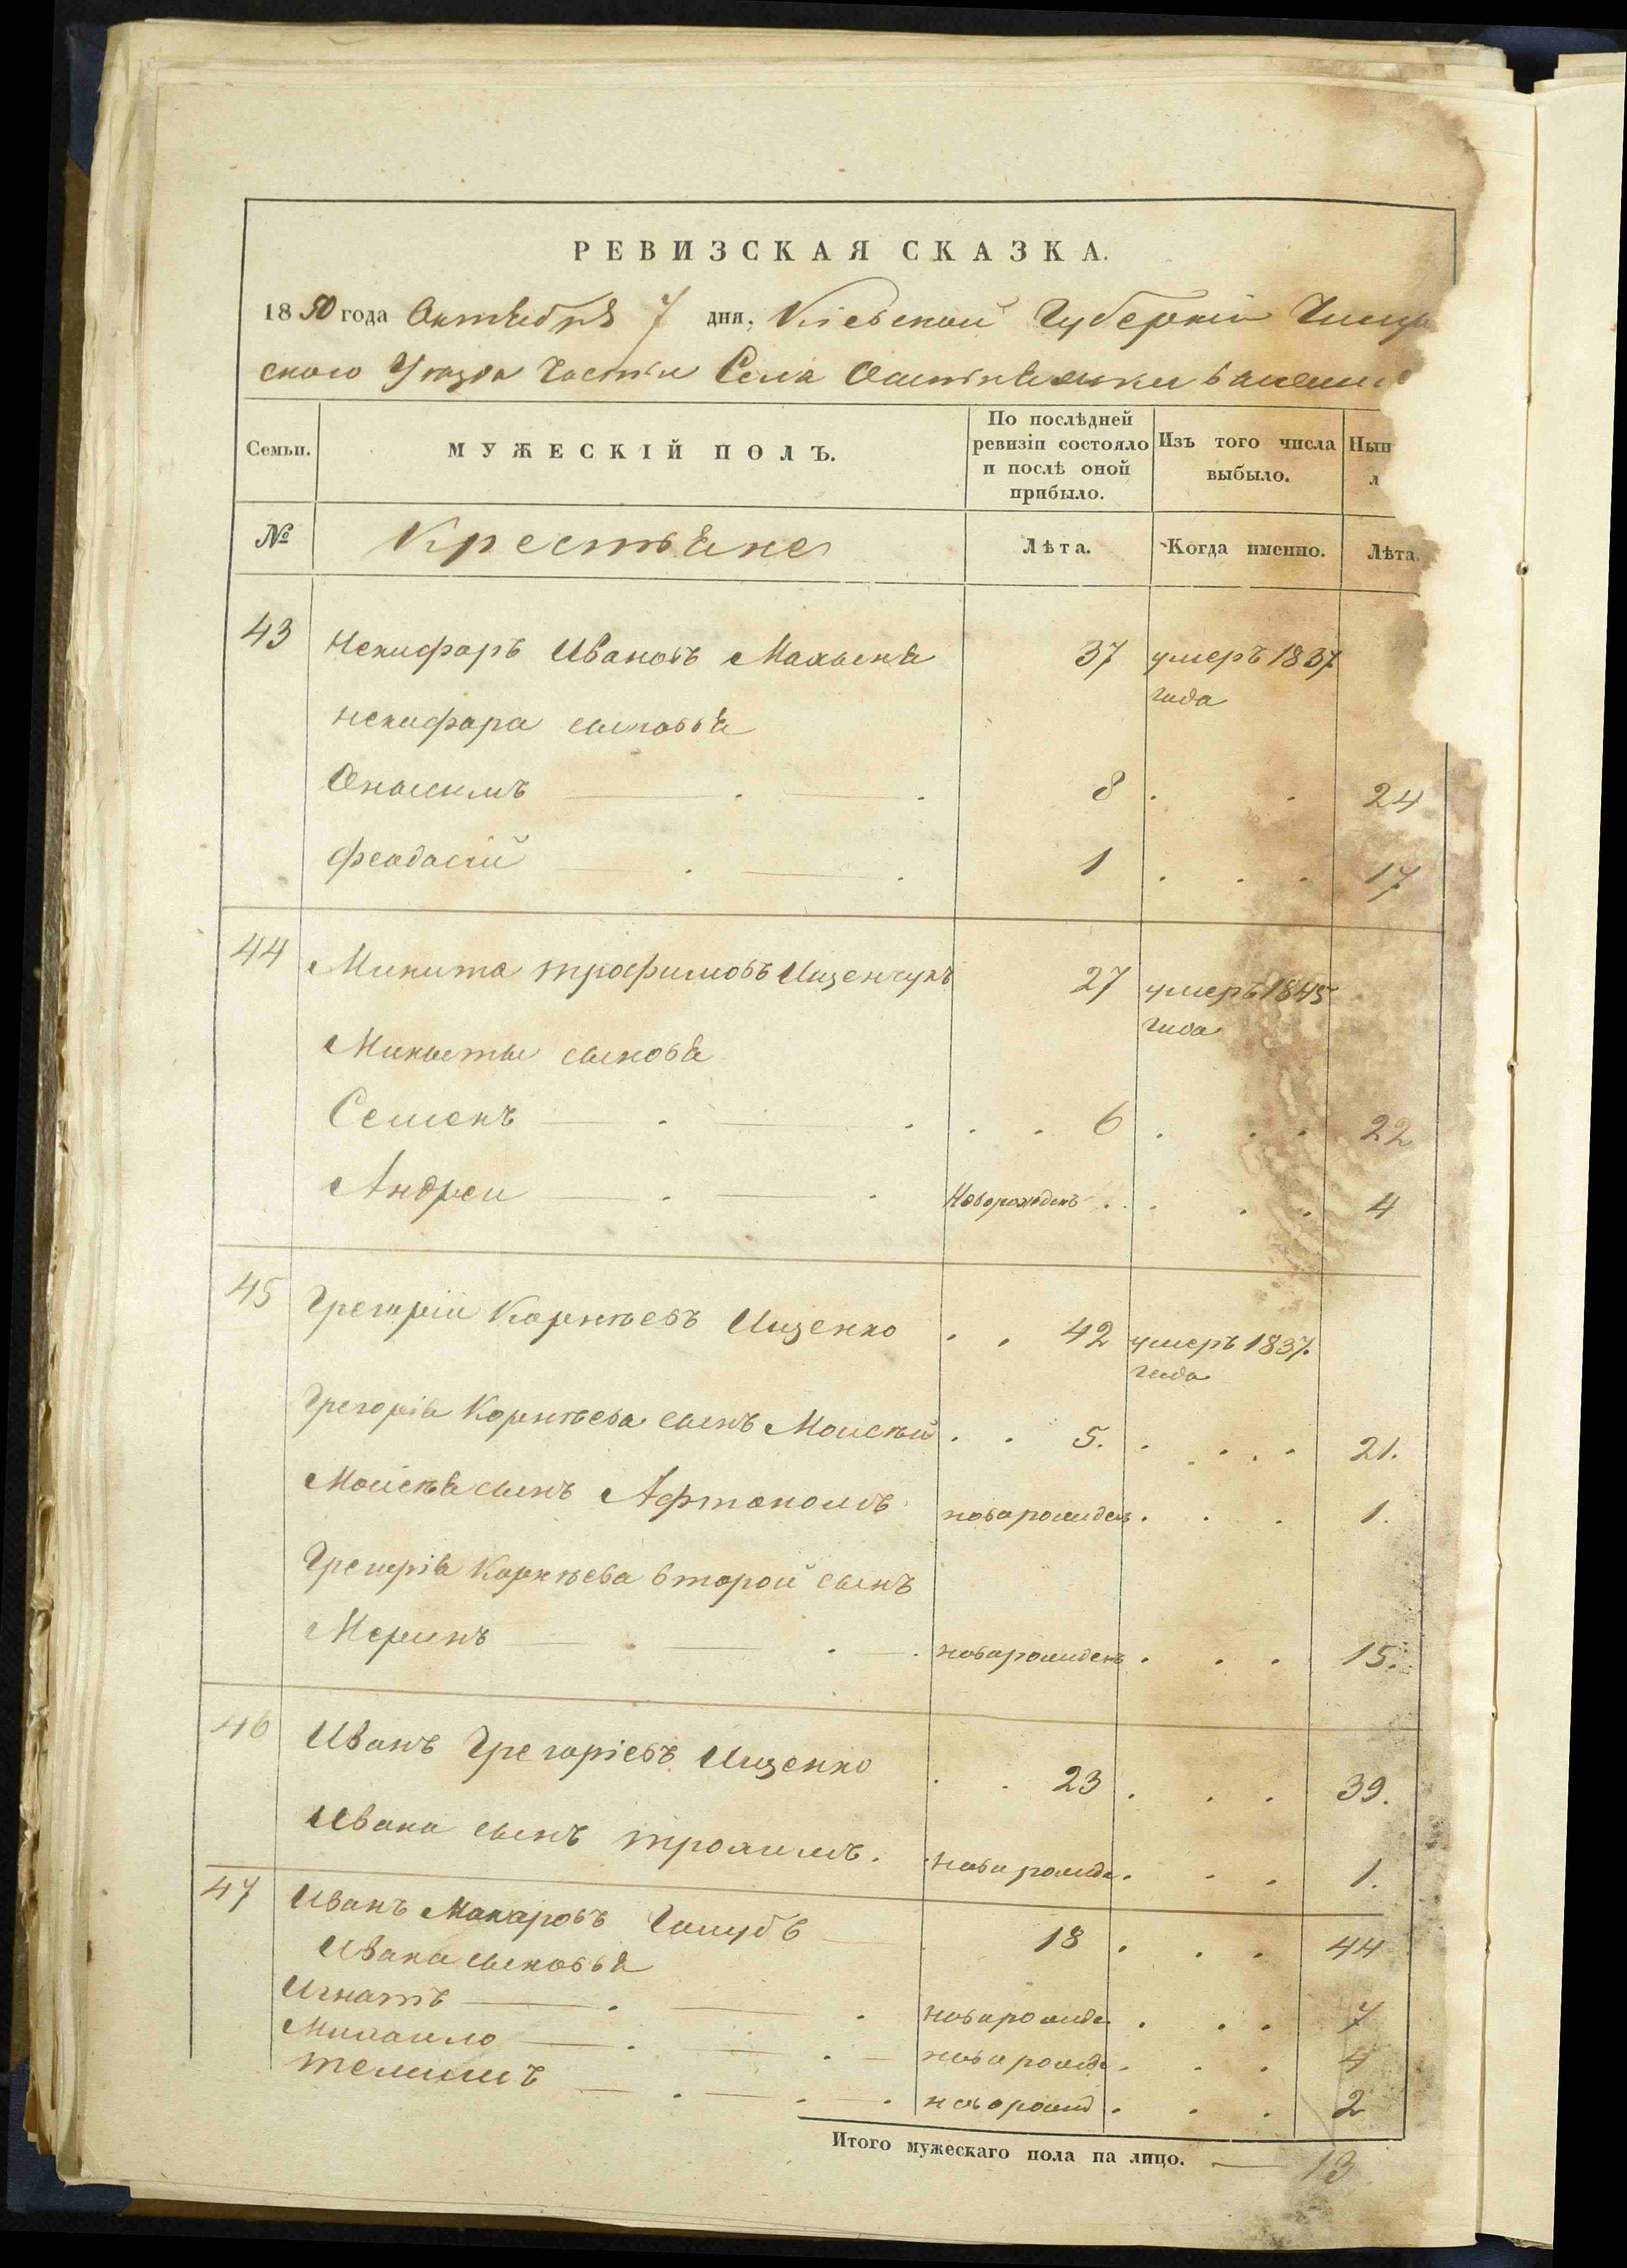 РЕВИЗСКАЯ СКАЗКА.
1850 года Октября 7 дня, Кіевской Губерніи
ского Уезда Части Села
Семьи.
МУЖЕСКІЙ ПОЛЪ.
По послѣдней ревизіи состояло и послѣ оной прибыло.
Изъ того числа выбыло.
Нын
л
№
Крестьяне
Лѣта.
Когда именно.
Лѣта.
43 Некифоръ Ивановъ 37 умеръ 1837 года
некифора сыновья
8 . . 24
феодосій 1 . . . 17
44 Микита трофимовъ Ищенчукъ 27 умеръ 1845 года
Микиты сыновя
Семенъ . . 6 . . . 22
Андреи Новорожденъ . . . . 4
45 Грегорій Корнѣевъ Ищенко . . 42 умеръ 1837. года
Грегорія Корнѣева сынъ Моисѣй . . 5. . . . . 21.
Моисѣя сынъ Афтономъ новорожденъ . . . 1.
Грегорія Корнѣева второй сынъ
новорожденъ . . . 15.
46 Иванъ Грегоріевъ Ищенко . . 23 . . . 39.
Ивана сынъ трохимъ. новорожде . . . 1.
47 Иванъ Макаровъ Голубъ 18 . . . 44
Ивана сыновья
Игнатъ новорожде . . . 7
Михаило новорожде . . . 4
новорожд . . . 2
Итого мужескаго пола на лицо. — 13